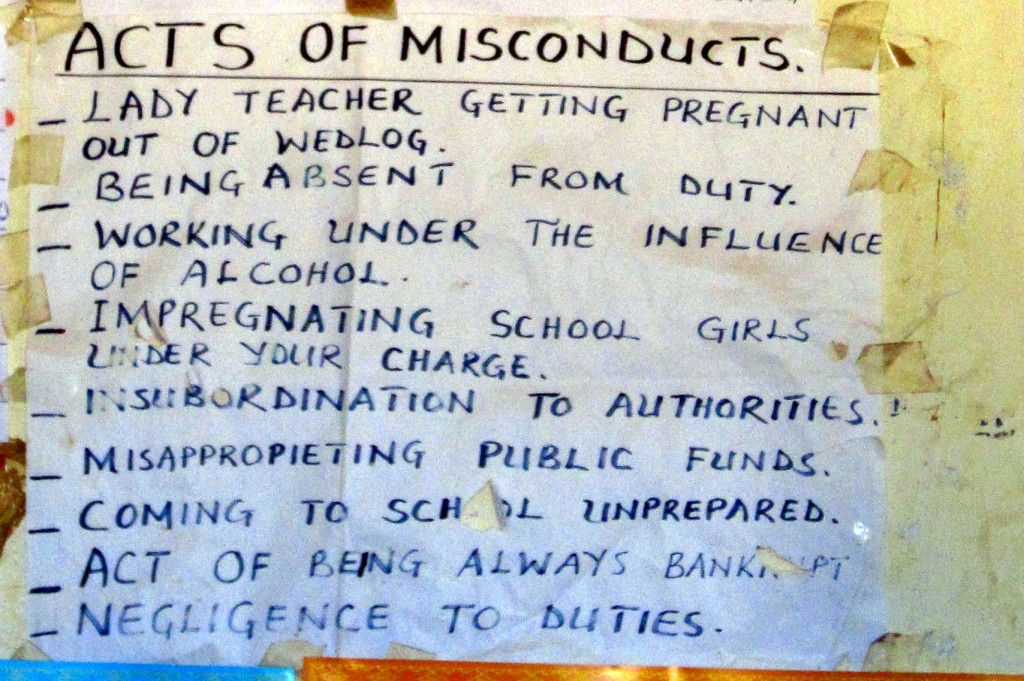 ACTS OF MISCONDUCTS.
_ LADY TEACHER GETTING PREGNANT
OUT OF WEDLOG.
_ BEING ABSENT FROM DUTY.
_ WORKING UNDER THE INFLUENCE
OF ALCOHOL.
_ IMPREGNATING SCHOOL GIRLS
UNDER YOUR CHARGE.
_ INSUBORDINATION TO AUTHORITIES.
_ MISAPPROPIETING PUBLIC FUNDS.
_ COMING TO SCHOOL UNPREPARED.
_ ACT OF BEING ALWAYS BANKRUPT
_ NEGLIGENCE TO DUTIES.